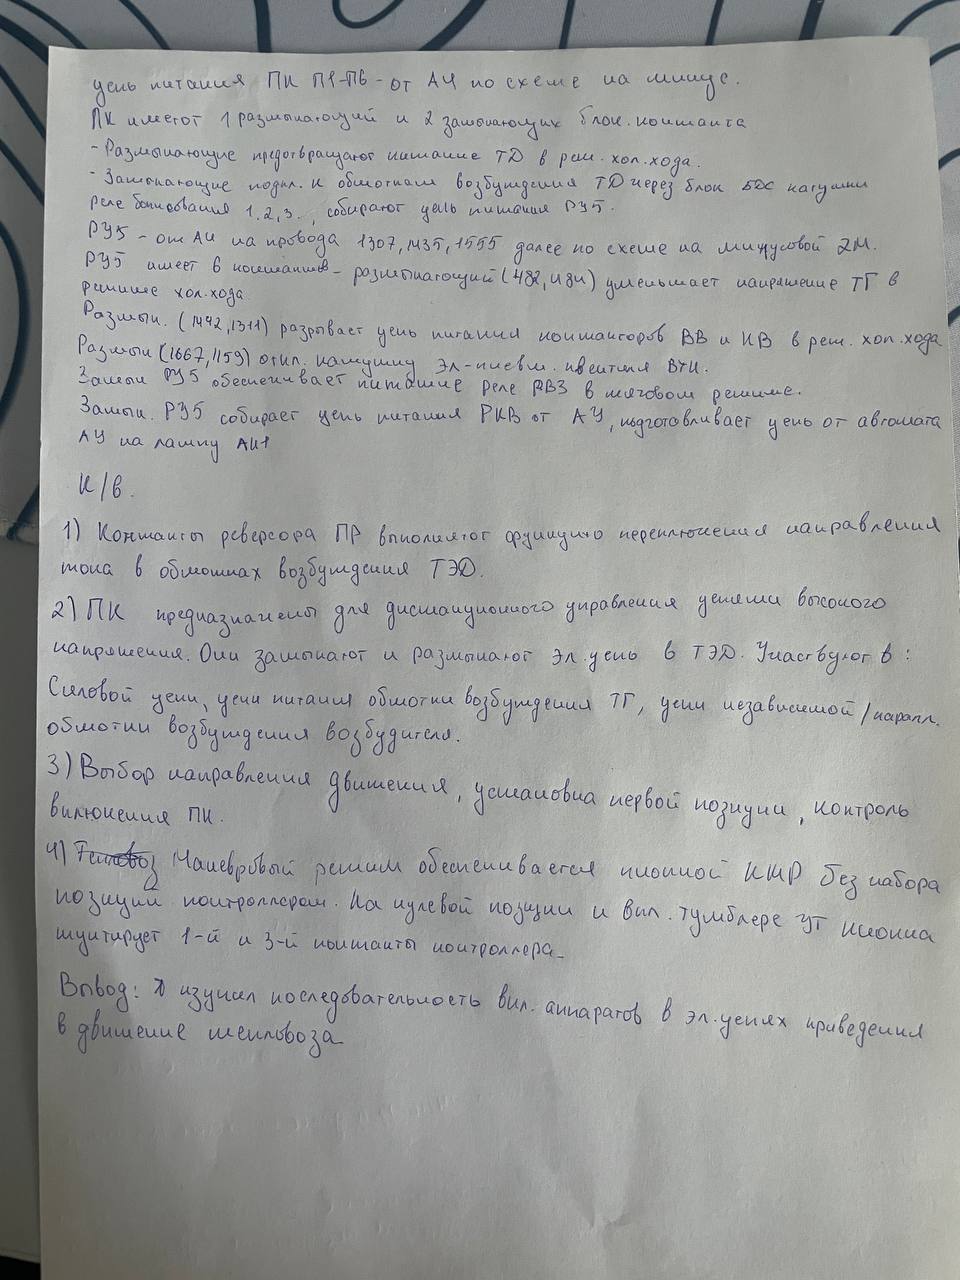 цепь питания ПК П1-П6 - от АУ по схеме на минус.
ПК имеют 1 размыкающий и 2 замыкающих блок. контакта
- Размыкающие предотвращают питание ТД в реж. хол.хода.
- Замыкающие подкл. к обмоткам возбуждения ТД через блок БДС катушки
реле боксования 1.2,3., собирают цепь питания РУ5.
РУ5 - от АУ на провода 1307, 1435, 1555 далее по схеме на минусовой 2М.
РУ5 имеет 6 контактов - размыкающий (482, 484) уменьшает напряжение ТГ в
режиме хол.хода
Размык. (1442,1311) разрывает цепь питания контакторов ВВ и КВ в реж. хол.хода
Размык (1667,1159) откл. катушку эл-пневм. вентиля
Замык РУ5 обеспечивает питание реле РВ3 в тяговом режиме.
Замык. РУ5 собирает цепь питания РКВ от АУ, подготавливает цепь от автомата
АУ на лампу
К/в.
1) Контакты реверсора ПР выполняют функцию переключения направления
тока в обмотках возбуждения ТЭД.
2) ПК предназначены для дистанционного управления цепями высокого
напряжения. Они замыкают и размыкают эл.цепь в ТЭД. Участвуют в :
Силовой цепи, цепи питания обмотки возбуждения ТГ, цепи независимой/паралл.
обмотки возбуждения возбудителя.
3) Выбор направления движения, установка первой позиции, контроль
включения ПК.
4) Маневровый режим обеспечивается кнопкой КМР без набора
позиций контроллером. На нулевой позиции и вкл. тумблере УТ кнопка
шунтирует 1-й и 3-й контакты контроллера.
Вывод: я изучил последовательность вкл. аппаратов в эл.цепях приведения
в движение тепловоза